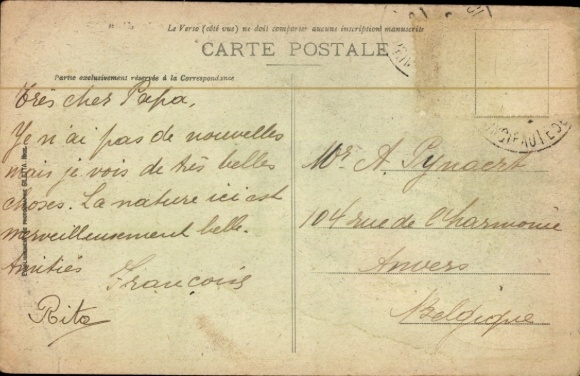 Le Verso (côté vue) ne doit comporter aucune inscription manuscrite
CARTE POSTALE
Partie exclusivement réservée à la Correspondance
Très cher Papa,
Je n'ai pas de nouvelles
mais je vois de très belles
choses. La nature ici est
merveilleusement belle.
Amitiés
François
Rita
Mr A. Pynaert
104 rue de l'harmonie
Anvers
Belgique